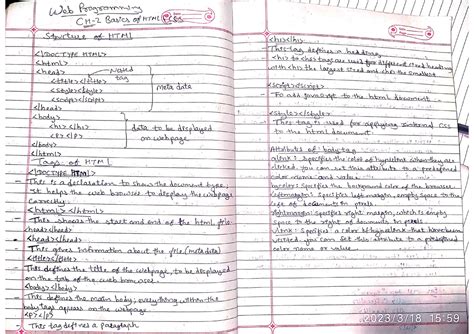 Web Programming
CH-2 Basics of HTML & CSS
Structure of HTML
<!DOCTYPE HTML>
<html>
<head>
<title></title>
<style></style>
<script></script>
Nested
tag
Meta data
</head>
<body>
<h1></h1>
<p></p>
data to be displayed
on webpage
</body>
</html>
Tags of HTML
<!DOCTYPE HTML>
- This is a declaration to show the document type;
It helps the web browser to display the webpage
correctly.
<html></html>
- This shows the start and end of the html file
<head></head>
- This gives information about the file (meta data)
<title></title>
- This defines the title of the webpage, to be displayed
on the tab of the web browser.
<body></body>
- This defines the main body; everything within the
body tags appears on the webpage
<p></p>
- This tag defines a paragraph
<h1></h1>
- This tag defines a heading
<h1> to <h6> tags are used for different sized headings
with <h1> the largest sized and <h6> the smallest
<script></script>
- To add javascript to the html document
<style></style>
- This tag is used for applying internal CSS
to the html document.
Attributes of body tag
alink: Specifies the color of hyperlink when they are
clicked. you can set this attribute to a predefined
color name and value
bgcolor: Specifies the background color of the browser
leftmargin: Specifies left margin, empty space to the
left of document in pixels
rightmargin: Specifies right margin, which is empty
space to the right of document in pixels
vlink: Specifies a color of hyperlink that have been
visited. you can set this attribute to a predefined
color name or value.
2023/3/18 15:59